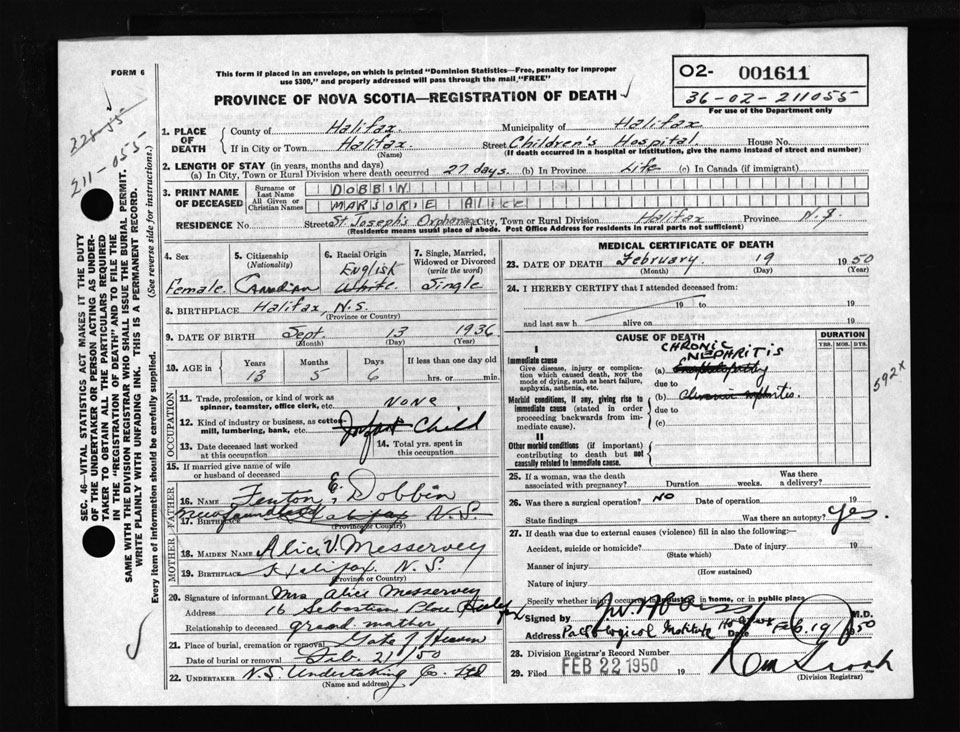 FORM 6
This form if placed in an envelope, on which is printed "Dominion Statistics—Free, penalty for improper
use $300," and properly addressed will pass through the mail "FREE"
PROVINCE OF NOVA SCOTIA—REGISTRATION OF DEATH
O2- 001611
36-02-211055
For use of the Department only
228-55
211-055
SEC. 46—VITAL STATISTICS ACT MAKES IT THE DUTY
OF THE UNDERTAKER OR PERSON ACTING AS UNDER-
TAKER TO OBTAIN ALL THE PARTICULARS REQUIRED
IN THE "REGISTRATION OF DEATH" AND TO FILE THE
SAME WITH THE DIVISION REGISTRAR WHO SHALL ISSUE THE BURIAL PERMIT.
WRITE PLAINLY WITH UNFADING INK. THIS IS A PERMANENT RECORD.
Every item of information should be carefully supplied. (See reverse side for instructions.)
1. PLACE OF DEATH
County of Halifax. Municipality of Halifax
If in City or Town Halifax. Street Children's Hospital. House No.
(Name) (If death occurred in a hospital or institution, give the name instead of street and number)
2. LENGTH OF STAY (in years, months and days)
(a) In City, Town or Rural Division where death occurred 27 days. (b) In Province Life (c) In Canada (if immigrant)
3. PRINT NAME OF DECEASED
Surname or Last Name DOBBIN
All Given or Christian Names MARJORIE Alice
RESIDENCE No. Street St Joseph's Orphanage City, Town or Rural Division Halifax Province N.S.
(Residence means usual place of abode. Post Office Address for residents in rural parts not sufficient)
4. Sex 5. Citizenship (Nationality) 6. Racial Origin 7. Single, Married, Widowed or Divorced (write the word)
Female. Canadian English White. Single
8. BIRTHPLACE Halifax, N.S.
(Province or Country)
9. DATE OF BIRTH Sept. 13 1936
(Month) (Day) (Year)
10. AGE in Years Months Days If less than one day old
13 5 6 hrs. or min.
OCCUPATION
11. Trade, profession, or kind of work as
spinner, teamster, office clerk, etc. NONE
12. Kind of industry or business, as cotton-
mill, lumbering, bank, etc. Child
13. Date deceased last worked
at this occupation
14. Total yrs. spent in
this occupation
15. If married give name of wife
or husband of deceased
FATHER
16. Name Fenton E. Dobbin
17. Birthplace Newfoundland Halifax N.S.
(Province or Country)
MOTHER
18. MAIDEN NAME Alice V. Messervey
19. BIRTHPLACE Halifax. N.S.
(Province or Country)
20. Signature of informant Mrs Alice Messervey
Address 16 Sebastian Place Halifax
Relationship to deceased grand mother
21. Place of burial, cremation or removal Gate of Heaven
Date of burial or removal Feb. 21/50
22. UNDERTAKER N.S. Undertaking Co. Ltd
(Name and address)
MEDICAL CERTIFICATE OF DEATH
23. DATE OF DEATH February. 19 1950
(Month) (Day) (Year)
24. I HEREBY CERTIFY that I attended deceased from:
19 to 19
and last saw h alive on 19
CAUSE OF DEATH DURATION
YRS. MOS. DYS.
I
CHRONIC NEPHRITIS
Immediate cause (a)
Give disease, injury or complica-
tion which caused death, not the
mode of dying, such as heart failure,
asphyxia, asthenia, etc.
due to
Morbid conditions, if any, giving rise to
immediate cause (stated in order
proceeding backwards from im-
mediate cause).
(b) chronic nephritis.
due to
(c)
592x
II
Other morbid conditions (if important)
contributing to death but not
causally related to immediate cause.
25. If a woman, was the death
associated with pregnancy? Duration weeks. Was there a delivery?
26. Was there a surgical operation? NO Date of operation 19
State findings Was there an autopsy? Yes.
27. If death was due to external causes (violence) fill in also the following:
Accident, suicide or homicide? Date of injury 19
(State which)
Manner of injury
(How sustained)
Nature of injury
Specify whether injury occurred in industry, in home, or in public place
Signed by M.D.
Address Pathological Institute Date Feb 19 1950
28. Division Registrar's Record Number
29. Filed FEB 22 1950 19
(Division Registrar)